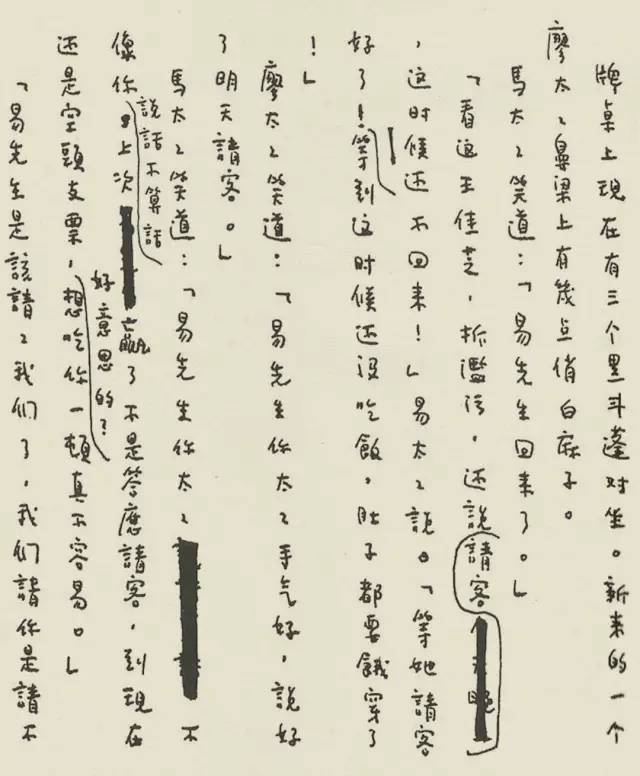 牌桌上現在有三个黑斗蓬对坐。新来的一个
廖太々鼻梁上有幾点俏白麻子。
馬太々笑道：「易先生回来了。」
「看这王佳芝，拆濫污，还說請客
，这时候还不回来！」易太々說。「等她請客
好了！等到这时候还没吃飯，肚子都要餓穿了
！」
廖太々笑道：「易先生你太々手气好，說好
了明天請客。」
馬太々笑道：「易先生你太々不
說話不算話
像你上次贏了不是答應請客，到現在
好意思的？
还是空頭支票，想吃你一頓真不容易。」
「易先生是該請々我们了，我们請你是請不